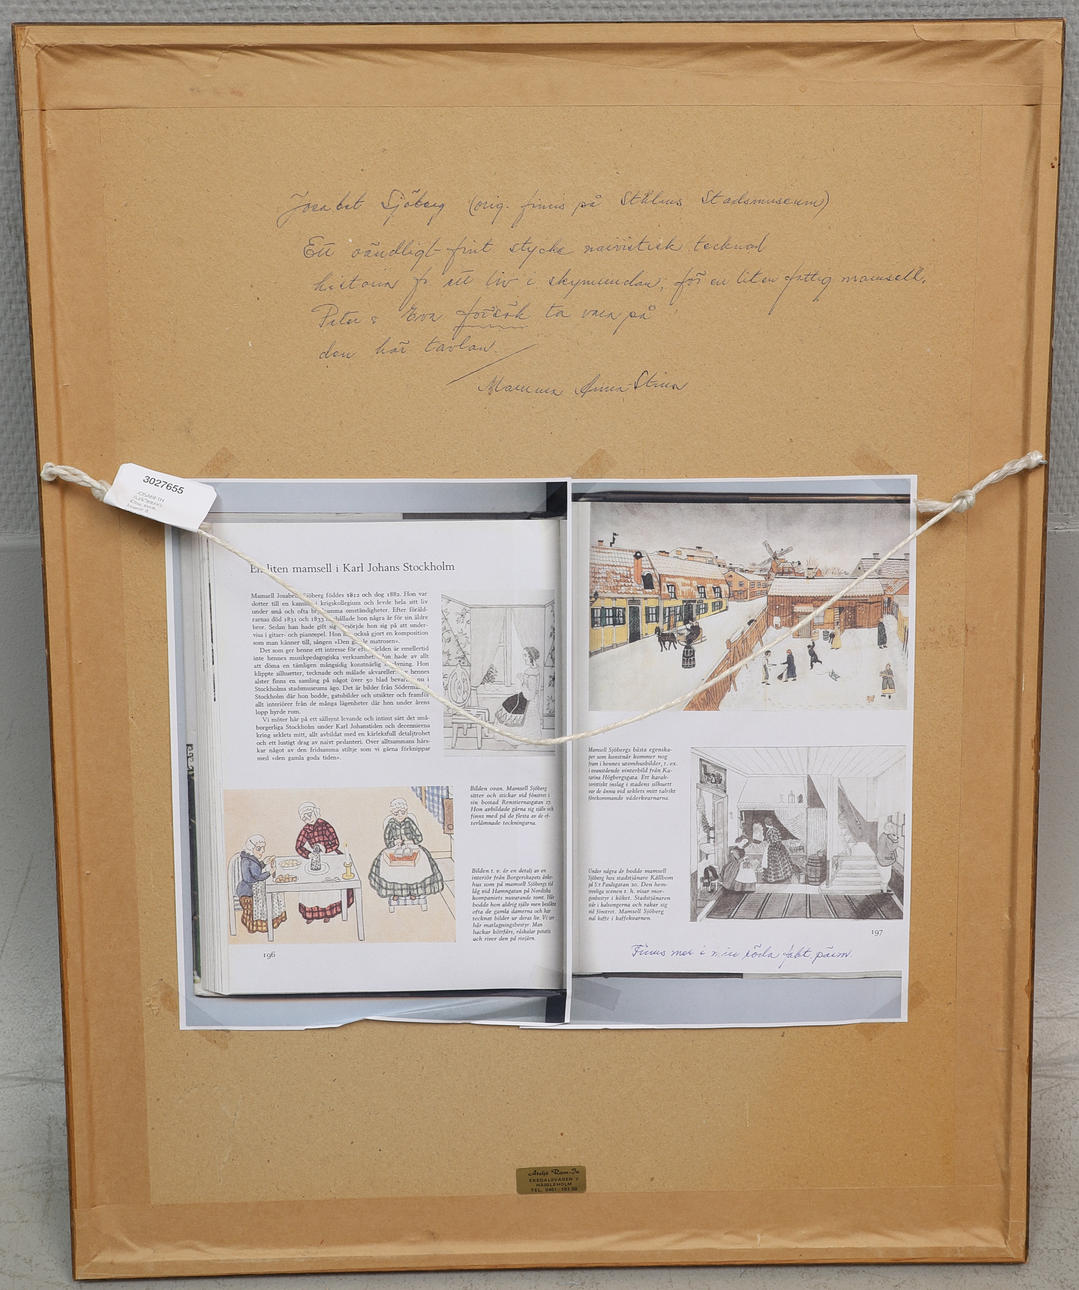 Josabet Sjöberg (orig. finns på Sthlms Stadsmuseum)
Ett oändligt fint stycke naivistisk tecknad
historia fr ett liv i skymundan, för en liten fattig mamsell.
Peter & Eva försök ta vara på
den här tavlan.
Mamma Anna-Stina
3027655
En liten mamsell i Karl Johans Stockholm
Mamsell Josabeth Sjöberg föddes 1812 och dog 1882. Hon var
dotter till en i krigskollegium och levde hela sitt liv
under små och ofta omständigheter. Efter föräld-
rarnas död 1831 och 1833 hon några år för sin äldre
bror. Sedan han hade gift sig försörjde hon sig på att under-
visa i gitarr- och pianospel. Hon också gjort en komposition
som man känner till, sången »Den matrosen».
Det som ger henne ett intresse för eftervärlden är emellertid
inte hennes musikpedagogiska verksamhet. Hon hade av allt
att döma en tämligen mångsidig konstnärlig. Hon
klippte silhuetter, tecknade och målade akvareller. hennes
alster finns en samling på något över 50 blad nu i
Stockholms stadsmuseums ägo. Det är bilder från Södermalm i
Stockholm där hon bodde, gatubilder och utsikter och framför
allt interiörer från de många lägenheter där hon under årens
lopp hyrde rum.
Vi möter här på ett sällsynt levande och intimt sätt det små-
borgerliga Stockholm under Karl Johanstiden och decennierna
kring seklets mitt, allt avbildat med en kärleksfull detaljtrohet
och ett lustigt drag av naivt pedanteri. Över alltsammans härs-
kar något av den fridsamma stiltje som vi gärna förknippar
med »den gamla goda tiden».
Bilden ovan. Mamsell Sjöberg
sitter och stickar vid fönstret i
sin bostad Renstiernasgatan 17.
Hon avbildade gärna sig själv och
finns med på de flesta av de ef-
terlämnade teckningarna.
Bilden t. v. är en detalj av en
interiör från Borgerskapets änke-
hus som på mamsell Sjöbergs tid
låg vid Hamngatan på Nordiska
kompaniets nuvarande tomt. Här
bodde hon aldrig själv men besökte
ofta de gamla damerna och har
tecknat bilder ur deras liv. Vi ser
här matlagningsbestyr. Man
hackar köttfärs, råskalar potatis
och river den på rivjärn.
196
Mamsell Sjöbergs bästa egenska-
per som konstnär kommer nog
fram i hennes utomhusbilder, t. ex.
i ovanstående vinterbild från Ka-
tarina Högbergsgata. Ett karak-
teristiskt inslag i stadens silhuett
var de ännu vid seklets mitt talrikt
förekommande väderkvarnarna.
Under några år bodde mamsell
Sjöberg hos stadstjänare Källbom
på S:t Paulsgatan 20. Den hem-
trevliga scenen t. h. visar mor-
gonbestyr i köket. Stadstjänaren
står i kalsongerna och rakar sig
vid fönstret. Mamsell Sjöberg
mal kaffe i kaffekvarnen.
197
Finns mer i min röda fakt. pärm.
Ateljé Ram-In
TEL. 0451